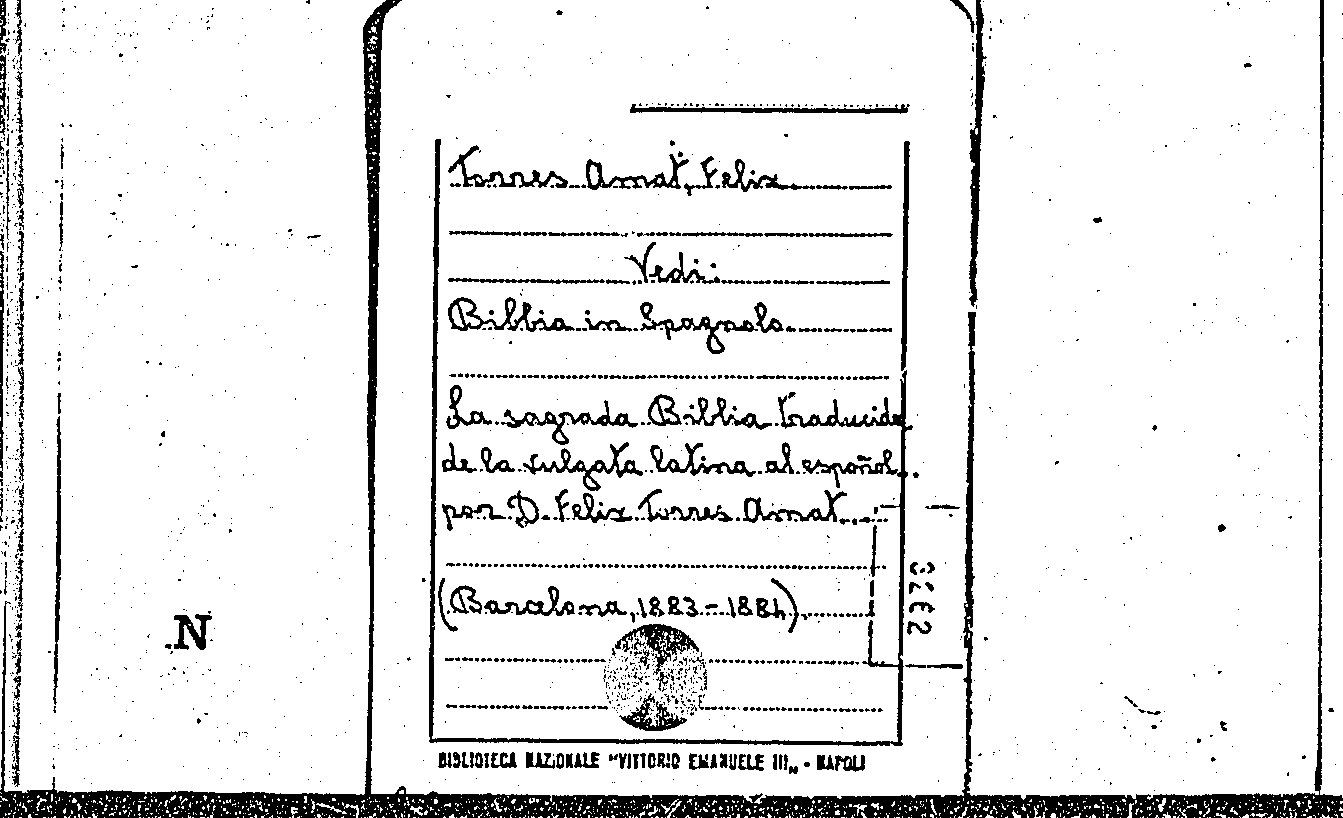 Torres Amat, Felix.
Vedi:
Bibbia in Spagnolo.
La sagrada Biblia traducida
de la vulgata latina al español..
por D. Felix Torres Amat...
(Barcelona, 1883-1884).
N
BIBLIOTECA NAZIONALE "VITTORIO EMANUELE III„ - NAPOLI